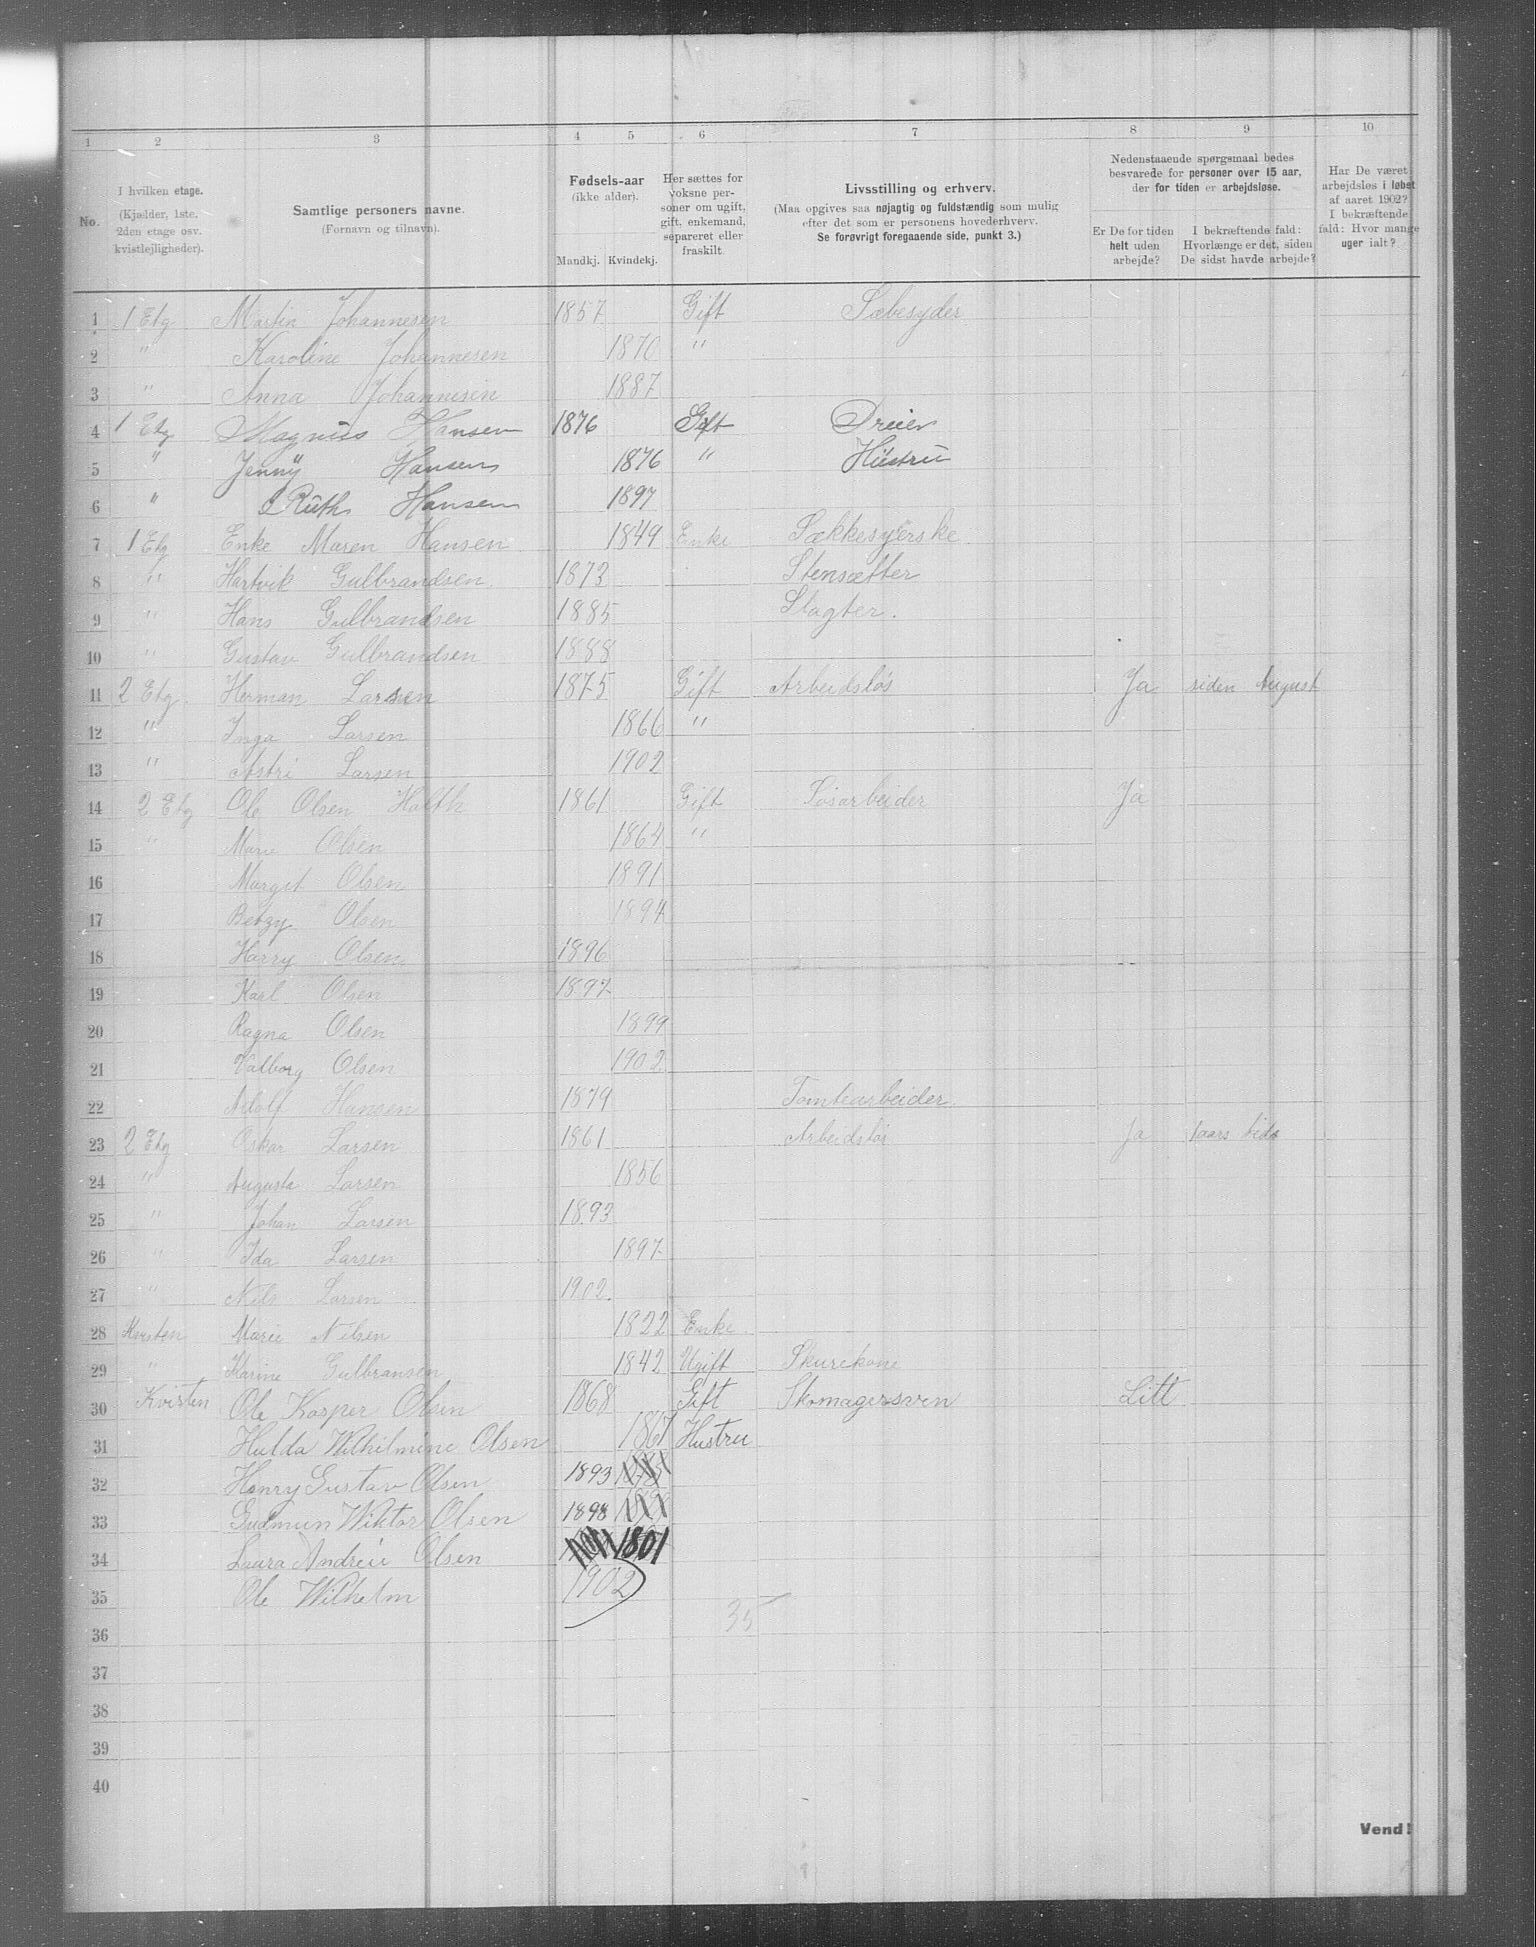 1 2 3 4 5 6 7 8 9 10
No. I hvilken etage. (Kjælder, 1ste, 2den etage osv. kvistlejligheder). Samtlige personers navne. (Fornavn og tilnavn). Fødsels-aar (ikke alder). Mandkj. Kvindekj. Her sættes for voksne personer om ugift, gift, enkemand, separeret eller fraskilt. Livsstilling og erhverv. (Maa opgives saa nøjagtig og fuldstændig som mulig efter det som er personens hovederhverv. Se forøvrigt foregaaende side, punkt 3.) Nedenstaaende spørgsmaal bedes besvarede for personer over 15 aar, der for tiden er arbejdsløse. Er De for tiden helt uden arbejde? I bekræftende fald: Hvorlænge er det, siden De sidst havde arbejde? Har De været arbejdsløs i løbet af aaret 1902? I bekræftende fald: Hvor mange uger ialt?
1 1 Etg Martin Johannesen 1857 Gift Sæbesyder
2 " Karoline Johannesen 1870 "
3 " Anna Johannesen 1887
4 1 Etg Magnus Hansen 1876 Gift Dreier
5 " Jenny Hansen 1876 " Hustru
6 " Ruth Hansen 1897
7 1 Etg Enke Maren Hansen 1849 Enke Sækkesyerske
8 " Hartvik Gulbrandsen 1873 Stensætter
9 " Hans Gulbrandsen 1885 Slagter.
10 " Gustav Gulbrandsen 1888
11 2 Etg. Herman Larsen 1875 Gift Arbeidsløs Ja siden August
12 " Inga Larsen 1866 "
13 " Astri Larsen 1902
14 2 Etg Ole Olsen Holth 1861 Gift Løsarbeider Ja
15 " Marie Olsen 1864 "
16 Margit Olsen 1891
17 Betzy Olsen 1894
18 Harry Olsen 1896
19 Karl Olsen 1897
20 Ragna Olsen 1899
21 Valborg Olsen 1902
22 Adolf Hansen 1879 Tomtearbeider
23 2 Etg Oskar Larsen 1861 Arbeidsløs Ja 1aars tids
24 " Augusta Larsen 1856
25 " Johan Larsen 1893
26 " Ida Larsen 1897
27 " Nils Larsen 1902
28 Kvisten Marie Nilsen 1822 Enke
29 " Karine Gulbransen 1842 Ugift Skurekone
30 Kvisten Ole Kasper Olsen 1868 Gift Skomagersven Litt
31 Hulda Wilhilmine Olsen 1867 Hustru
32 Henry Gustav Olsen 1893
33 Gudmun Wiktor Olsen 1898
34 Laura Andrea Olsen 1801
35 Ole Wilhelm 1902
35
36
37
38
39
40
Vend!